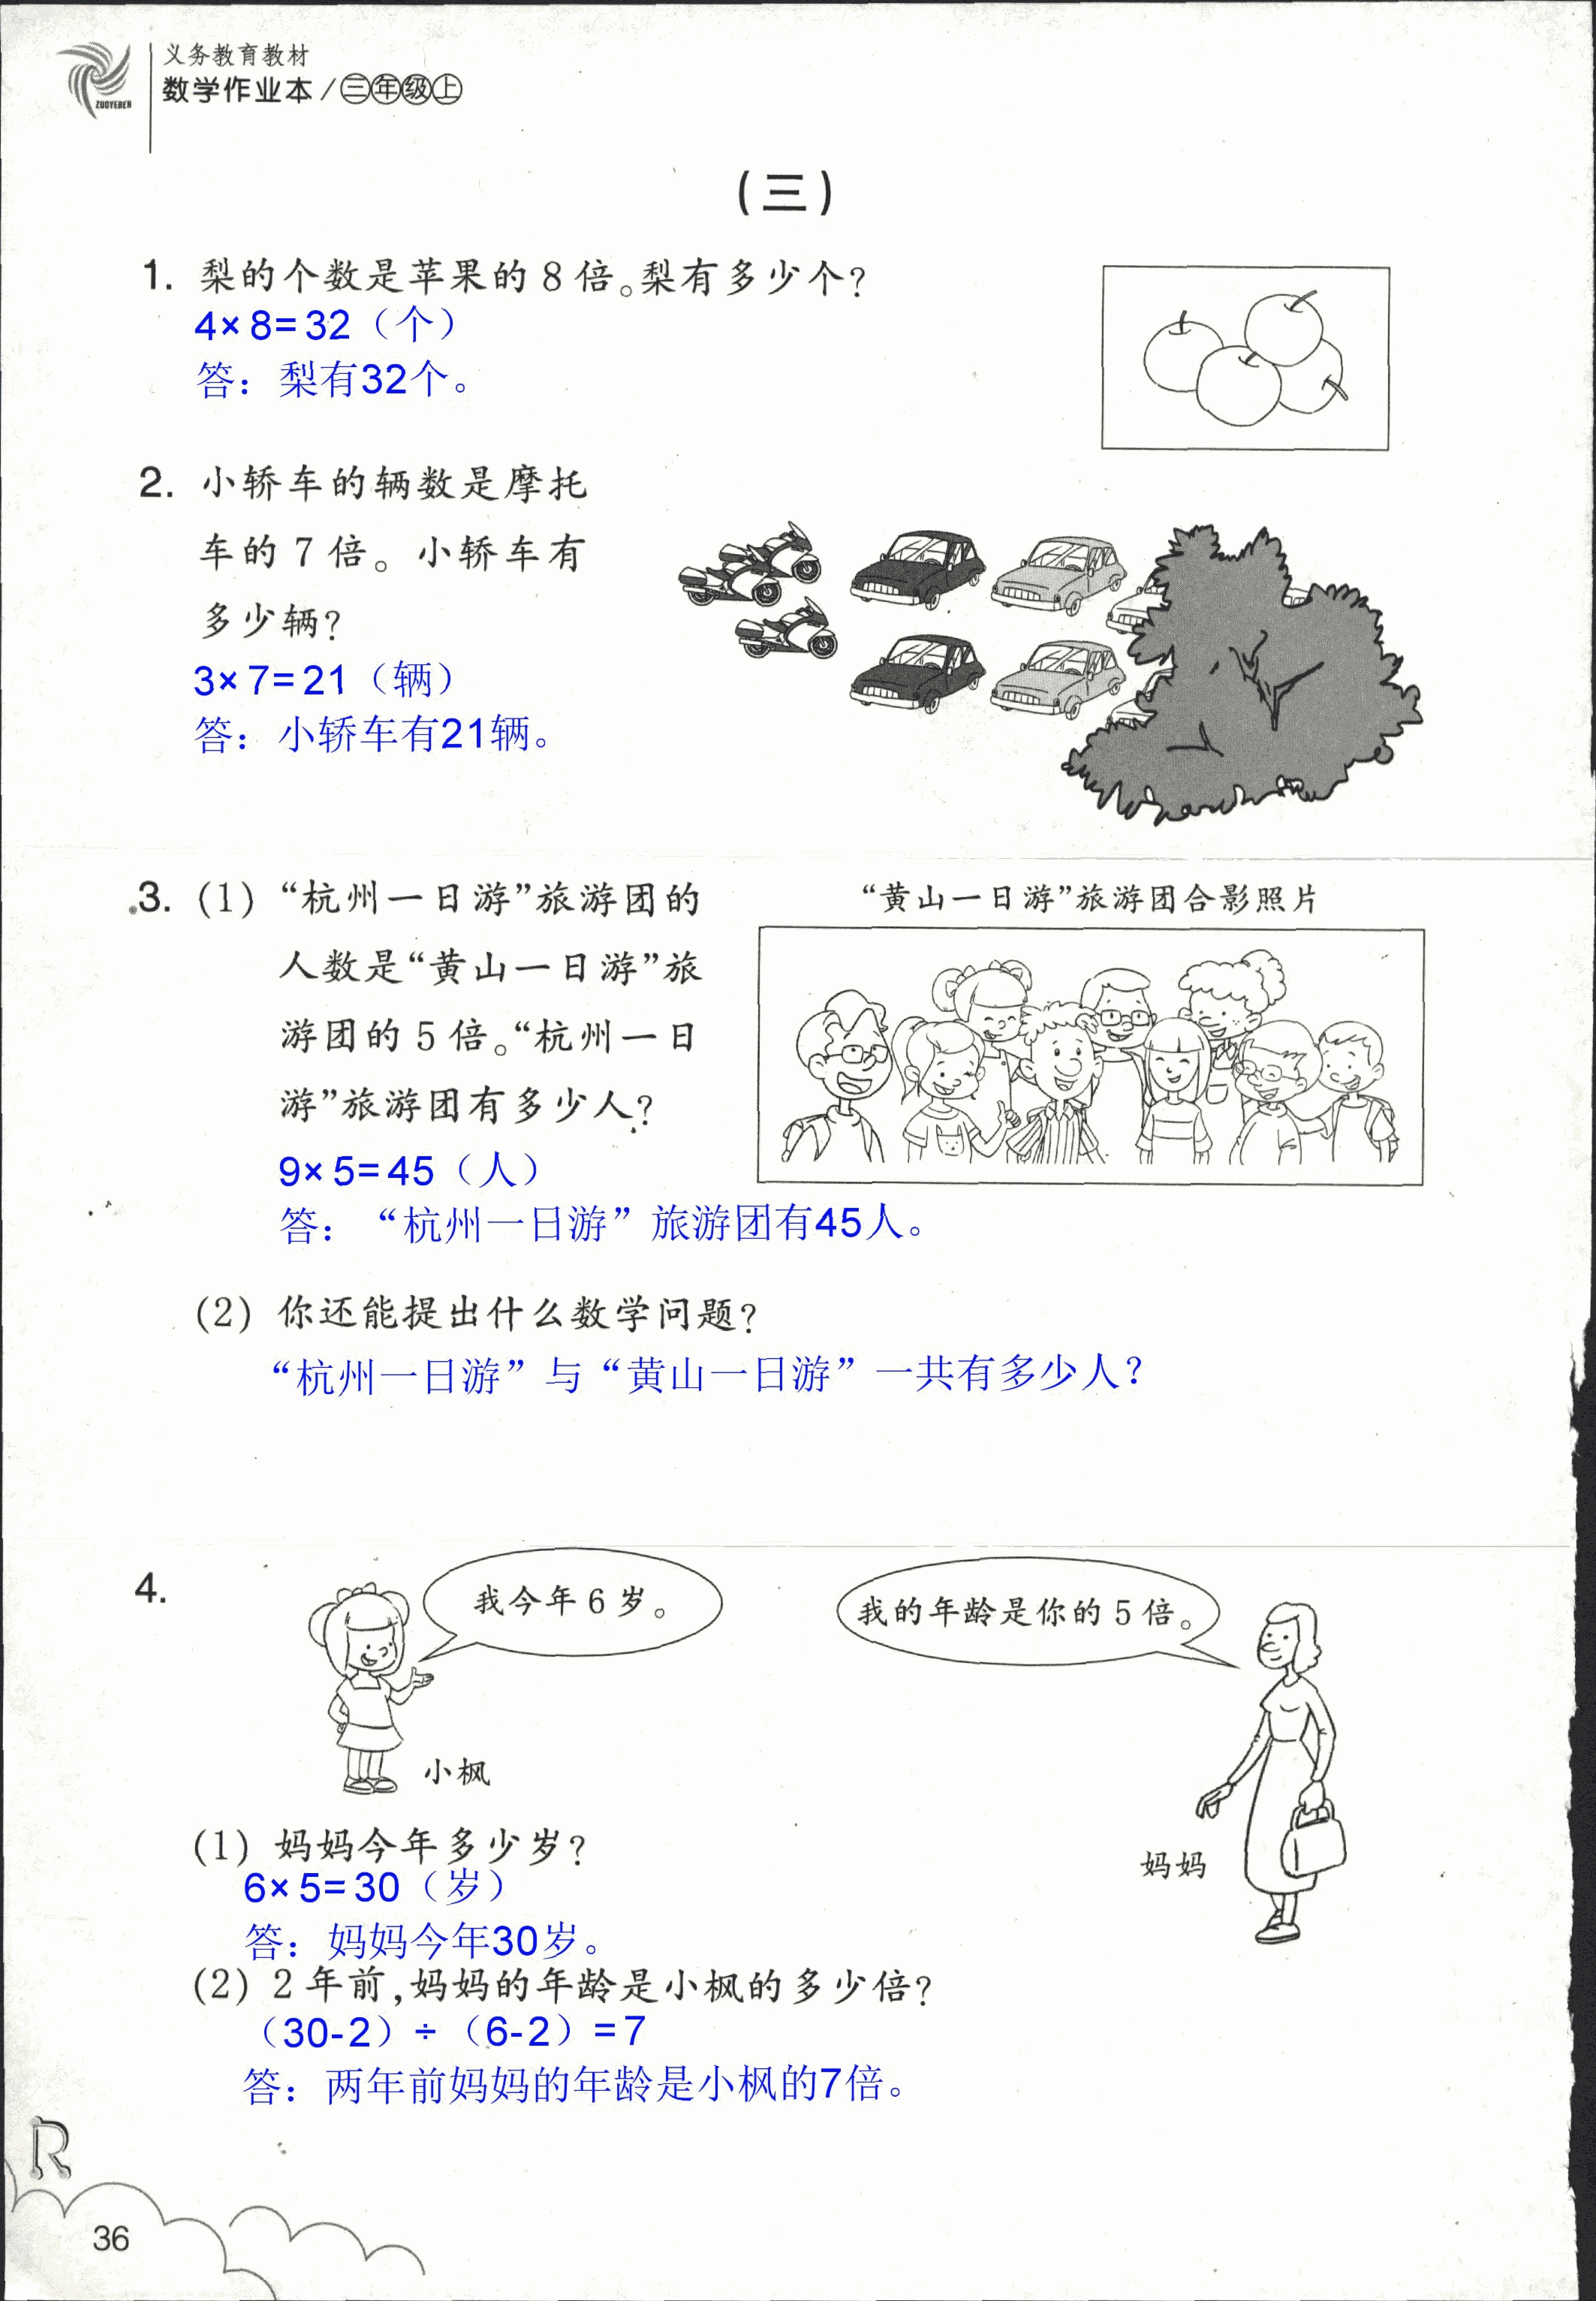 义务教育教材
ZUOYEBEN
数学作业本/三年级上
(三)
1. 梨的个数是苹果的8倍。梨有多少个?
4×8=32（个）
答：梨有32个。
2. 小轿车的辆数是摩托
车的7倍。小轿车有
多少辆?
3×7=21（辆）
答：小轿车有21辆。
3. (1) “杭州一日游”旅游团的
人数是“黄山一日游”旅
游团的5倍。“杭州一日
游”旅游团有多少人?
“黄山一日游”旅游团合影照片
9×5=45（人）
答：“杭州一日游”旅游团有45人。
(2) 你还能提出什么数学问题?
“杭州一日游”与“黄山一日游”一共有多少人?
4.
我今年6岁。
我的年龄是你的5倍。
小枫
妈妈
(1) 妈妈今年多少岁?
6×5=30（岁）
答：妈妈今年30岁。
(2) 2年前,妈妈的年龄是小枫的多少倍?
（30-2）÷（6-2）=7
答：两年前妈妈的年龄是小枫的7倍。
R
36